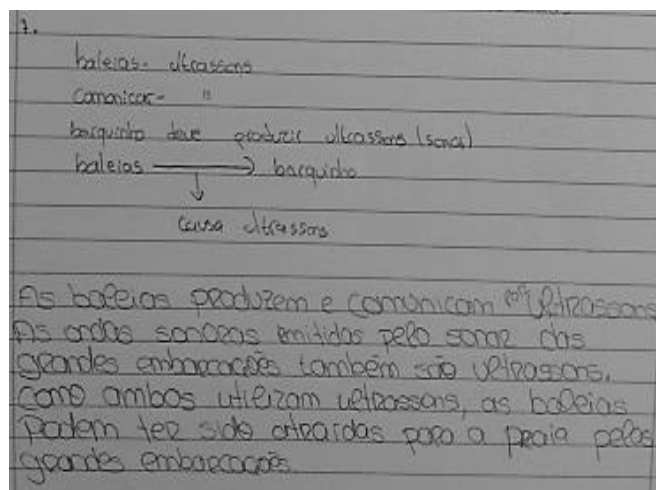 7.
baleias - ultrassons
comunicar - "
barquinho deve produzir ultrassons (sonar)
baleias → barquinho
↓
causa ultrassons
As baleias produzem e comunicam por ultrassons
As ondas sonoras emitidas pelo sonar das
grandes embarcações também são ultrassons.
Como ambos utilizam ultrassons, as baleias
podem ter sido atraídas para a praia pelas
grandes embarcações.